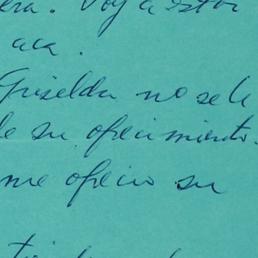 era. Voy a estar
aca.
Griselda no se le
de su ofrecimiento.
me ofrecio su